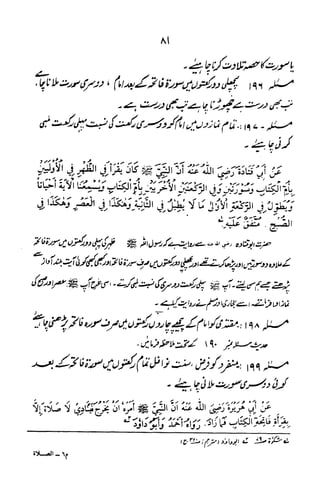 ۸۱
یا سورت کا حصہ تلاوت کرنا چاہیئے۔
مسئلہ ۱۹۶ پچھلی دو رکعتوں میں سورۃ فاتحہ کے بعد امام، دوسری سورت ملانا چاہے
تب بھی درست ہے چھوڑنا چاہے تب بھی درست ہے۔
مسئلہ ۱۹۷: تمام نمازوں میں امام کو دوسری رکعت کی نسبت پہلی رکعت لمبی
کرنی چاہیئے۔
عَنْ أَبِي قَتَادَةَ رَضِيَ اللهُ عَنْهُ أَنَّ النَّبِيَّ ﷺ كَانَ يَقْرَأُ فِي الظُّهْرِ فِي الْأُولَيَيْنِ
بِأُمِّ الْكِتَابِ وَسُورَتَيْنِ وَفِي الرَّكْعَتَيْنِ الْأُخْرَيَيْنِ بِأُمِّ الْكِتَابِ وَيُسْمِعُنَا الْآيَةَ أَحْيَانًا
وَيُطَوِّلُ فِي الرَّكْعَةِ الْأُولَى مَا لَا يُطِيلُ فِي الثَّانِيَةِ وَهَكَذَا فِي الْعَصْرِ وَهَكَذَا فِي
الصُّبْحِ. مُتَّفَقٌ عَلَيْهِ
حضرت ابو قتادہ رضی اللہ عنہ سے روایت ہے کہ رسول اللہ ﷺ ظہر کی پہلی دو رکعتوں میں سورۃ فاتحہ
کے علاوہ دو سورتیں اور پڑھا کرتے تھے اور پچھلی دو رکعتوں میں صرف سورۃ فاتحہ اور کبھی کبھی کوئی آیت بلند آواز سے
پڑھتے جسے ہم سن لیتے۔ آپ ﷺ پہلی رکعت دوسری کی نسبت لمبی کرتے۔ اسی طرح آپ ﷺ عصر اور صبح کی
نماز ادا فرماتے۔ اسے بخاری اور مسلم نے روایت کیا ہے۔
مسئلہ ۱۹۸: مقتدی کو امام کے پیچھے چاروں رکعتوں میں صرف سورہ فاتحہ پڑھنی چاہیئے
حدیث مسئلہ نمبر ۱۹۰ کے تحت ملاحظہ فرمائیں۔
مسئلہ ۱۹۹: منفرد کو فرض، سنت، نوافل تمام رکعتوں میں سورہ فاتحہ کے بعد
کوئی دوسری سورت ملانی چاہیئے۔
عَنْ أَبِي هُرَيْرَةَ رَضِيَ اللهُ عَنْهُ أَنَّ النَّبِيَّ ﷺ أَمَرَهُ أَنْ يَخْرُجَ فَيُنَادِيَ لَا صَلَاةَ إِلَّا
بِقِرَاءَةِ فَاتِحَةِ الْكِتَابِ فَمَا زَادَ. رَوَاهُ أَحْمَدُ وَأَبُو دَاوُدَ
م۶ - الصلاة